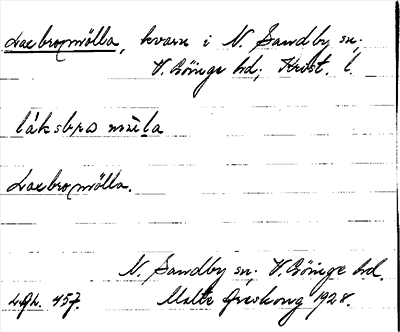 Laxbromölla, kvarn i N. Sandby sn;
V. Göinge hd; Krist. l.
láksbro mø̀la
Laxbromölla.
N. Sandby sn; V. Göinge hd.
457. Malte 1928.